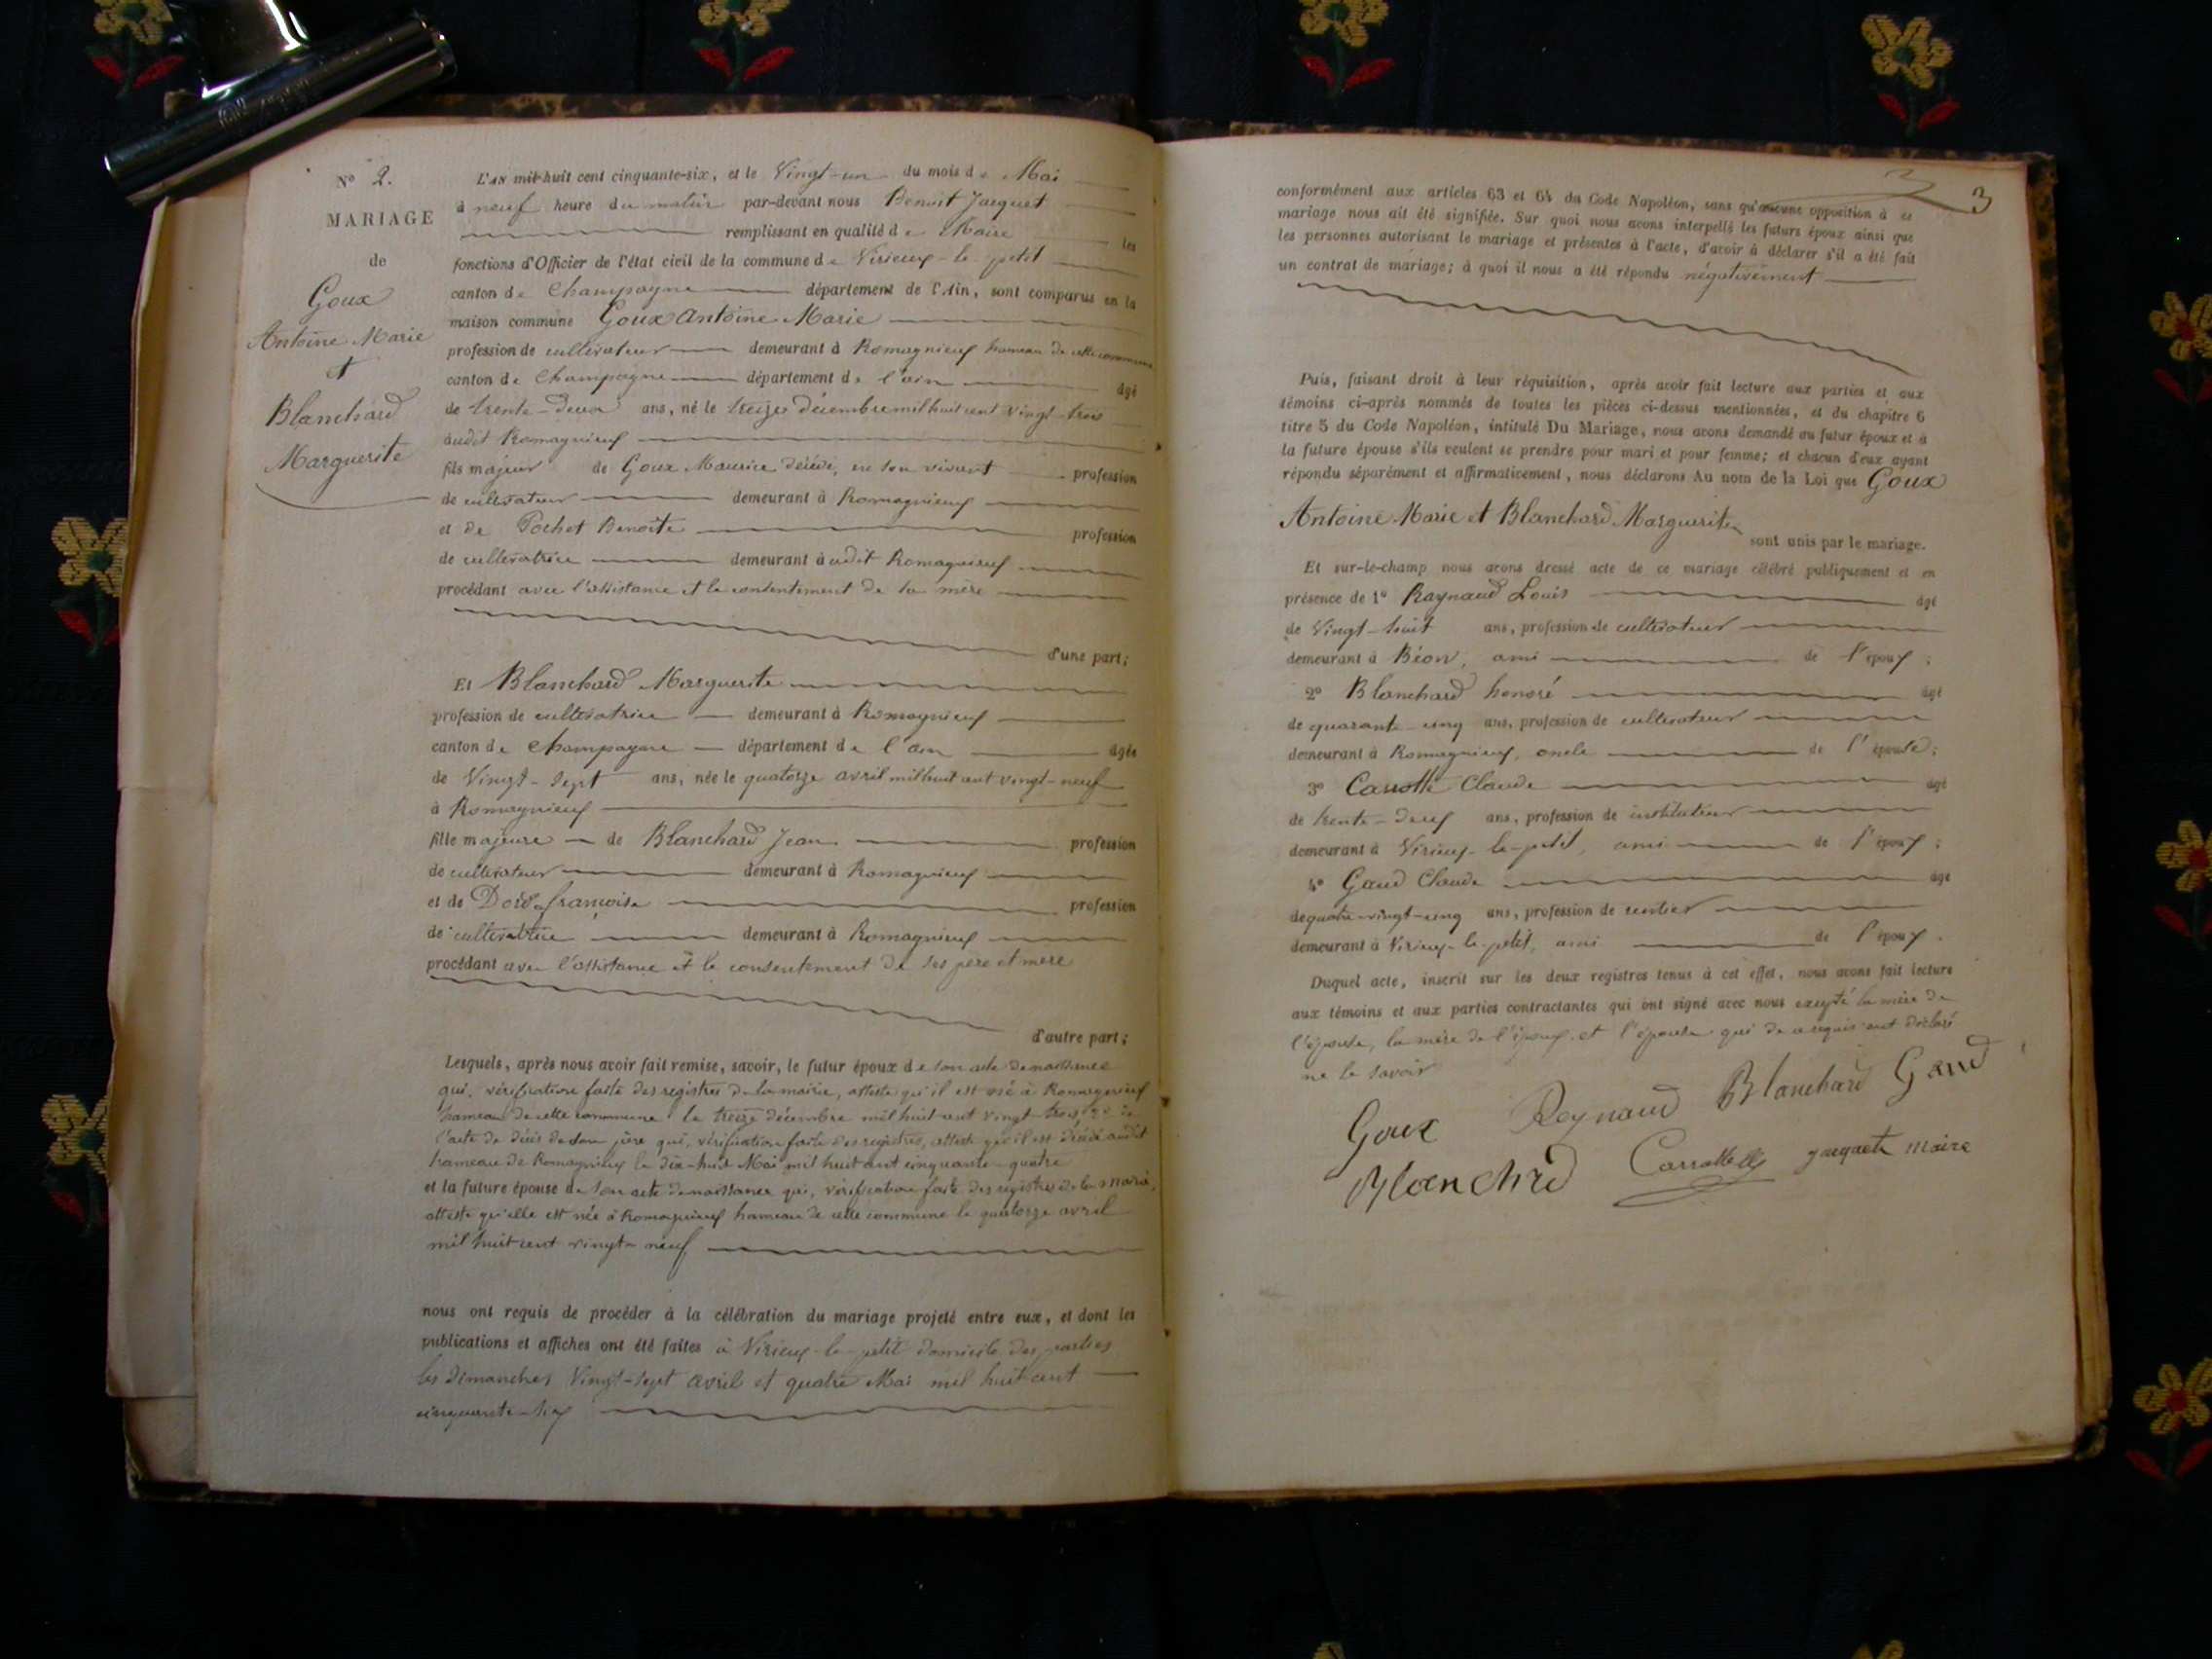 N° 2.
MARIAGE
de
Goux
Antoine Marie
et
Blanchard
Marguerite
L'AN mil huit cent cinquante-six, et le Vingt-un du mois de Mai
à neuf heure du matin par-devant nous Benoit Jacquet
remplissant en qualité de Maire les
fonctions d'Officier de l'état civil de la commune de Virieux-le-petit
canton de Champagne département de l'Ain, sont comparus en la
maison commune Goux Antoine Marie
profession de cultivateur demeurant à Romagnieux hameau de cette commune
canton de Champagne département de l'ain âgé
de trente-deux ans, né le treize décembre mil huit cent vingt-trois
audit Romagnieux
fils majeur de Goux Maurice décédé, en son vivant profession
de cultivateur demeurant à Romagnieux
et de Pochet Benoite profession
de cultivatrice demeurant à udit Romagnieux
procédant avec l'assistance et le consentement de sa mère
d'une part;
Et Blanchard Marguerite
profession de cultivatrice demeurant à Romagnieux
canton de Champagne département de l'ain âgée
de Vingt-sept ans, née le quatorze avril mil huit cent vingt-neuf
à Romagnieux
fille majeure de Blanchard Jean profession
de cultivateur demeurant à Romagnieux
et de françoise profession
de cultivatrice demeurant à Romagnieux
procédant avec l'assistance et le consentement de ses père et mère
d'autre part;
Lesquels, après nous avoir fait remise, savoir, le futur époux de son acte de naissance
qui, vérification faite des registres de la mairie, atteste qu'il est né à Romagnieux
hameau de cette commune le treize décembre mil huit cent vingt trois, de
l'acte de décès de son père qui, vérification faite des registres, atteste qu'il est décédé audit
hameau de Romagnieux le dix-huit Mai mil huit cent cinquante-quatre
et la future épouse de son acte de naissance qui, vérification faite des registres de la mairie,
atteste qu'elle est née à Romagnieux hameau de cette commune le quatorze avril
mil huit cent vingt-neuf
nous ont requis de procéder à la célébration du mariage projeté entre eux, et dont les
publications et affiches ont été faites à Virieux-le-petit domicile des parties
les dimanches Vingt-sept avril et quatre Mai mil huit cent
cinquante-six
3
conformément aux articles 63 et 64 du Code Napoléon, sans qu'aucune opposition à ce
mariage nous ait été signifiée. Sur quoi nous avons interpellé les futurs époux ainsi que
les personnes autorisant le mariage et présentes à l'acte, d'avoir à déclarer s'il a été fait
un contrat de mariage; à quoi il nous a été répondu négativement
Puis, faisant droit à leur réquisition, après avoir fait lecture aux parties et aux
témoins ci-après nommés de toutes les pièces ci-dessus mentionnées, et du chapitre 6
titre 5 du Code Napoléon, intitulé Du Mariage, nous avons demandé au futur époux et à
la future épouse s'ils veulent se prendre pour mari et pour femme; et chacun d'eux ayant
répondu séparément et affirmativement, nous déclarons Au nom de la Loi que Goux
Antoine Marie et Blanchard Marguerite
sont unis par le mariage.
Et sur-le-champ nous avons dressé acte de ce mariage célébré publiquement et en
présence de 1° Raynaud Louis âgé
de Vingt-huit ans, profession de cultivateur
demeurant à Béon, ami de l'époux;
2° Blanchard honoré âgé
de quarante-cinq ans, profession de cultivateur
demeurant à Romagnieux, oncle de l'épouse;
3° Carrotte Claude âgé
de trente-deux ans, profession de instituteur
demeurant à Virieux-le-petit, ami de l'époux;
4° Gaud Claude âgé
de quatre-vingt-cinq ans, profession de rentier
demeurant à Virieux-le-petit, ami de l'époux.
Duquel acte, inscrit sur les deux registres tenus à cet effet, nous avons fait lecture
aux témoins et aux parties contractantes qui ont signé avec nous excepté la mère de
l'épouse, la mère de l'époux et l'épouse qui de ce requis ont déclaré
ne le savoir
Goux Reynaud Blanchard Gaud
Blanchrd jacquet maire